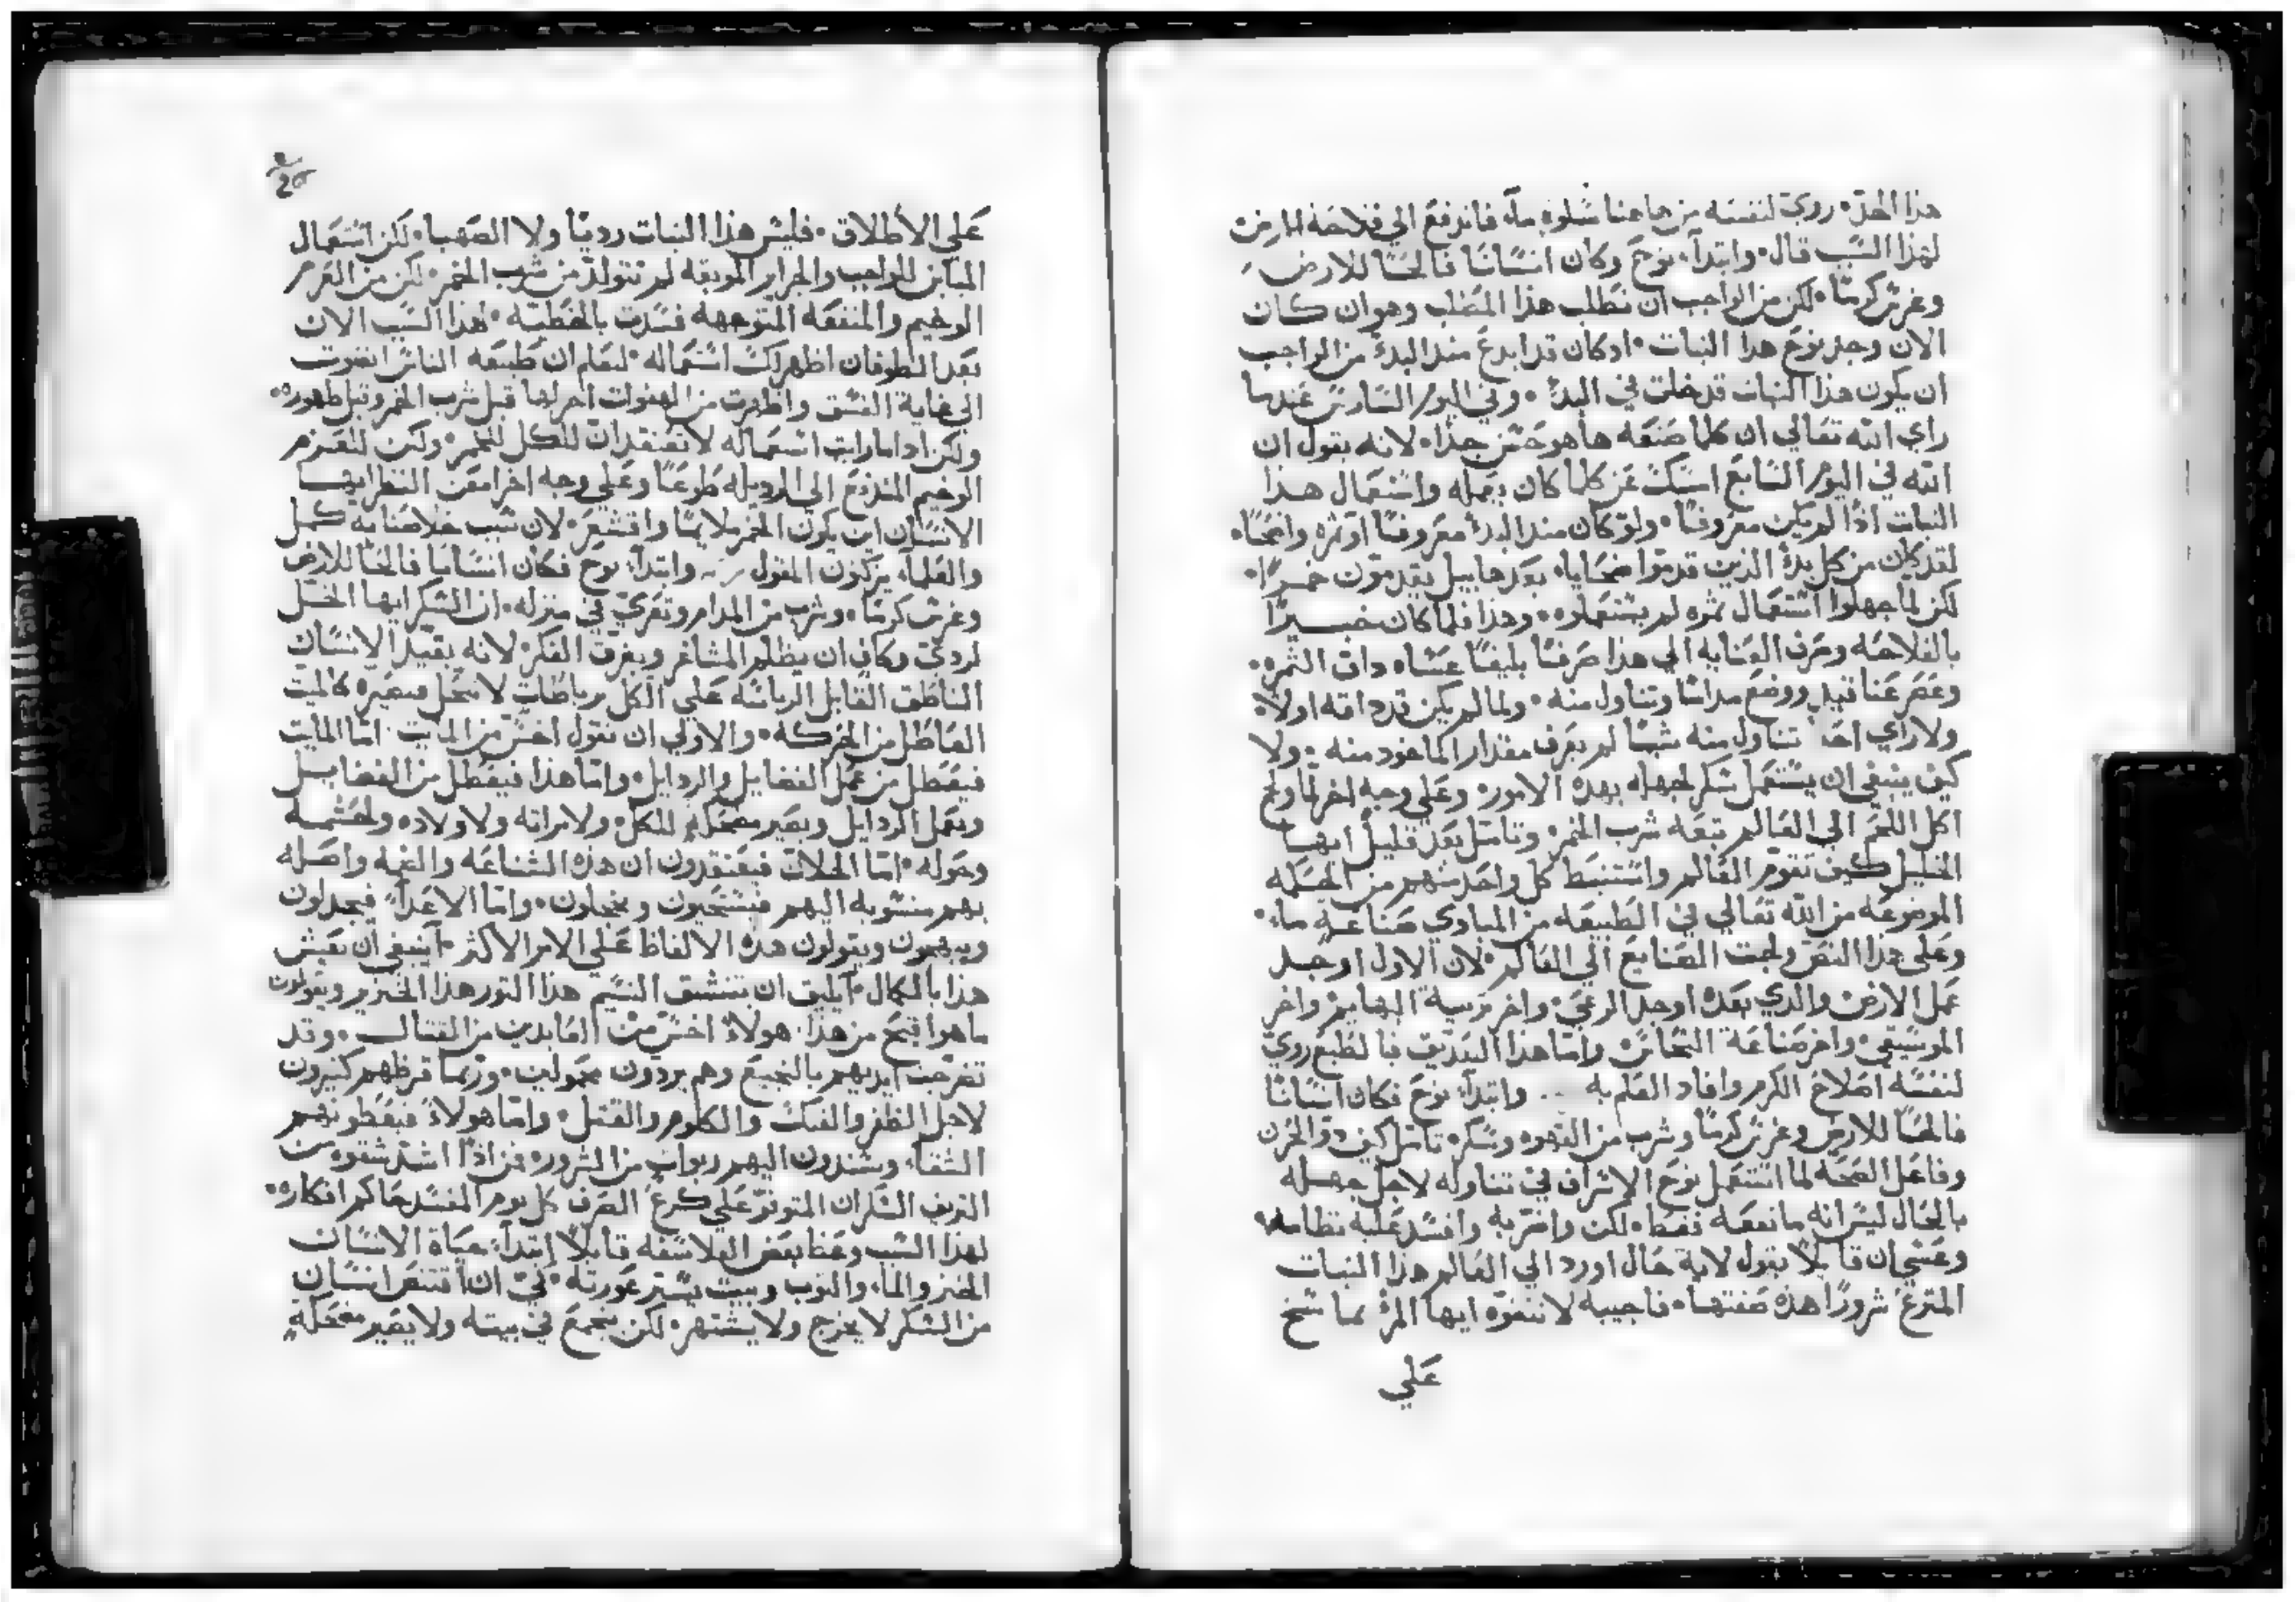 هذا الحل روي لنفسه من هاهنا سلوه ما فاندفع الي فلاحة الارض
لهذا السبب قال وابتدا نوح وكان انسانا فالحا للارض
وغرس كرما لكن من الواجب ان نطلب هذا المطلب وهو ان كان
الان وجد نوح هدا النبات ادكان قد ابدع مند البدء من الواجب
ان يكون هذا النبات قد خلت في البدء وفي اليوم السادس عندما
راي الله تعالي ان كلما صنعه هاهو حسن جدا لانه يقول ان
الله في اليوم السابع امسك عن كلما كان يعمله واستعمال هذا
النبات اذا لم يكن معروفا ولو كان مند البدء معروفا اوثمره واضحا
لقد كان من كل بدء الذين قدموا ضحايا بعد هابيل يقدمون خمرا
لكن لما جهلوا استعمال ثمره لم يستعملوه وهذا فلما كان خبيرا
بالفلاحه وصرف العنايه الي هذا صرفا بليغا عساه داق الثمره
وعصر عناقيد ووضع مداما وتناول منه ولما لم يكن قد داقه اولا
ولا راي احدا تناول منه شيا لم يعرف مقدار الماخود منه ولا
كيف ينبغي ان يستعمل سكر لجهله بهده الامور وعلي وجه اخر لما ولج
اكل اللحم الي العالم تبعه شرب الخمر وتامل بعد قليل ايها
الخليل كيف تقوم العالم واستنبط كل واحد منهم من الحكمه
الموضوعه من الله تعالي في الطبيعه من المبادي صناعة ما
وعلي هذا النص ولجت الصنايع الي العالم لان الاول اوجد
عمل الارض والدي بعده اوجد الرعي واخر تربية البهايم واخر
الموسيقي واخر صناعة النحاس واما هدا الصديق فبالطبع روي
لنفسه اصلاح الكرم وافاد العلم به وابتدا نوح فكان انسانا
فالحا للارض وغرس كرما وشرب من القهوه وسكر تامل كيف دو الحزن
وفاعل الصحه لما استعمل نوح الاسراف في تناوله لاجل جهله
بالحال ليس انه ما نفعه فقط لكن واضر به وافسد عليه نظامه
وعسي ان قايلا يقول لاية حال اورد الي العالم هذا النبات
المترع شرورا هذه صفتها فاجيبه لا تتفوه ايها المرء بما سنح
علي
علي الاطلاق فليس هذا النبات رديا ولا الصهبا لكن استعمال
المباين للواجب والجراير الموبقه لم تتولد من شرب الخمر لكن من العزم
الوخيم والمنفعه المتوجهه فسدت بالخطيه لهذا السبب الان
بعد الطوفان اظهر لك استعماله لتعلم ان طبيعه الناس انغوت
الي غاية الفسق واظهرت من الهفوات اجرلها قبل شرب الخمر وقبل ظهوره
ولكن ادا ما رايت استعماله لا تعتقد ان للكل للخمر ولكن للعزم
الوخيم المندفع الي الرديله طوعا وعلي وجه اخر امعن النظر ايها
الانسان اين يكون الخمر ملايما واقشعر لان سبب خلاصنا به كمل
والعلماء يزكون المقول وابتدا نوح فكان انسانا فالحا للارض
وغرس كرما وشرب من المدام وتعري في منزله ان السكر ايها الخل
لردي وكاف ان يظلم المشاعر ويغرق الفكر لانه يقيد الانسان
الناطق القابل الرياسه علي الكل برباطات لا تنحل فيصيره كالميت
العاطل من الحركه والاولي ان نقول اخس من المايت اما المايت
فيعطل من عمل الفضايل والردايل واما هذا فيعطل من الفضايل
ويعمل الردايل ويصير مضحكه للكل ولامراته ولاولاده ولحشمه
وحوله اما الخلان فيعتقدون ان هذه الشناعه والغمه واصله
بهم منسوبه اليهم فيستحيون ويخجلون واما الاعداء فيجدلون
ويبهجون ويقولون هده الالفاظ علي الامر الاكثر اينبغي ان يعيش
هذا بالكمال ايليق ان يتنشق النسيم هذا الثور هدا الخنزير ويقولون
ما هو اقبح من هذا هولاء اخس من العايدين من القتال وقد
تضرجت ايديهم بالنجيع وهم يردون محمولين وربما قرظهم كثيرون
لاجل الظفر والفتك والكلوم والقتل واما هولاء فيغطونهم
الشقاء ويسندون اليهم ربوات من الشرور فمن اذا اشد شقوه من
النزيف السكران المتوفر علي كرع الصرف كل يوم المفسد حاكم افكاره
لهذا السبب وعظ بعض الفلاسفه قايلا ابتداء حياة الانسان
الخبز والماء والثوب وبيت يستر عورته لي ان اقتنص انسان
من السكر لا يخرج ولا يشتهر لكن يجمع في بيته ولا يصير مضحكه